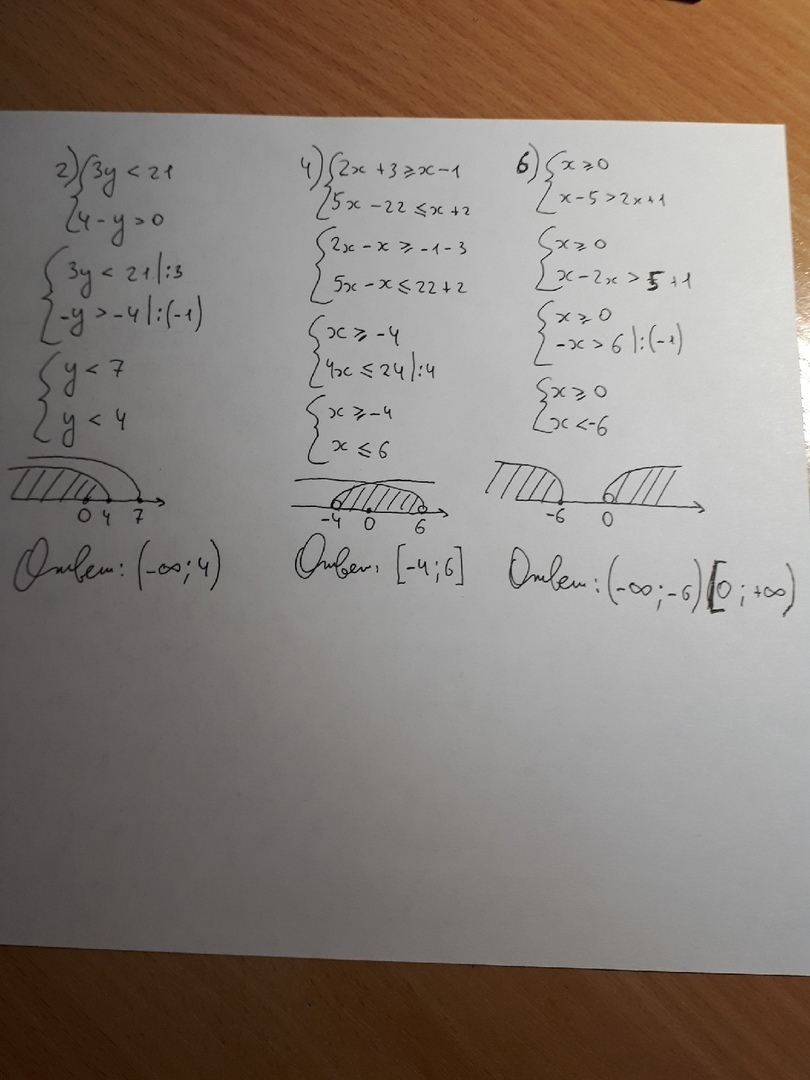 2) { 3y < 21
4 - y > 0
{ 3y < 21 |:3
-y > -4 |:(-1)
{ y < 7
y < 4
0 4 7
Ответ: (-∞; 4)
4) { 2x + 3 ⩾ x - 1
5x - 22 ⩽ x + 2
{ 2x - x ⩾ -1 - 3
5x - x ⩽ 22 + 2
{ x ⩾ -4
4x ⩽ 24 |:4
{ x ⩾ -4
x ⩽ 6
-4 0 6
Ответ: [-4; 6]
6) { x ⩾ 0
x - 5 > 2x + 1
{ x ⩾ 0
x - 2x > 5 + 1
{ x ⩾ 0
-x > 6 |:(-1)
{ x ⩾ 0
x < -6
-6 0
Ответ: (-∞; -6) [0; +∞)